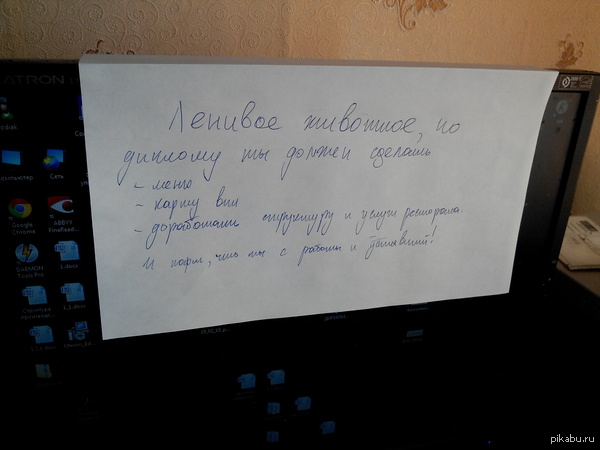 ATRON
Ленивое животное, по
диплому ты должен сделать
- меню
- карту вин
- доработать структуру и услуги ресторана.
И пофиг, что ты с работы и уставший!
Google
Chrome
ABBYY
FineRead...
DAEMON
Tools Pro
1.docx
pikabu.ru